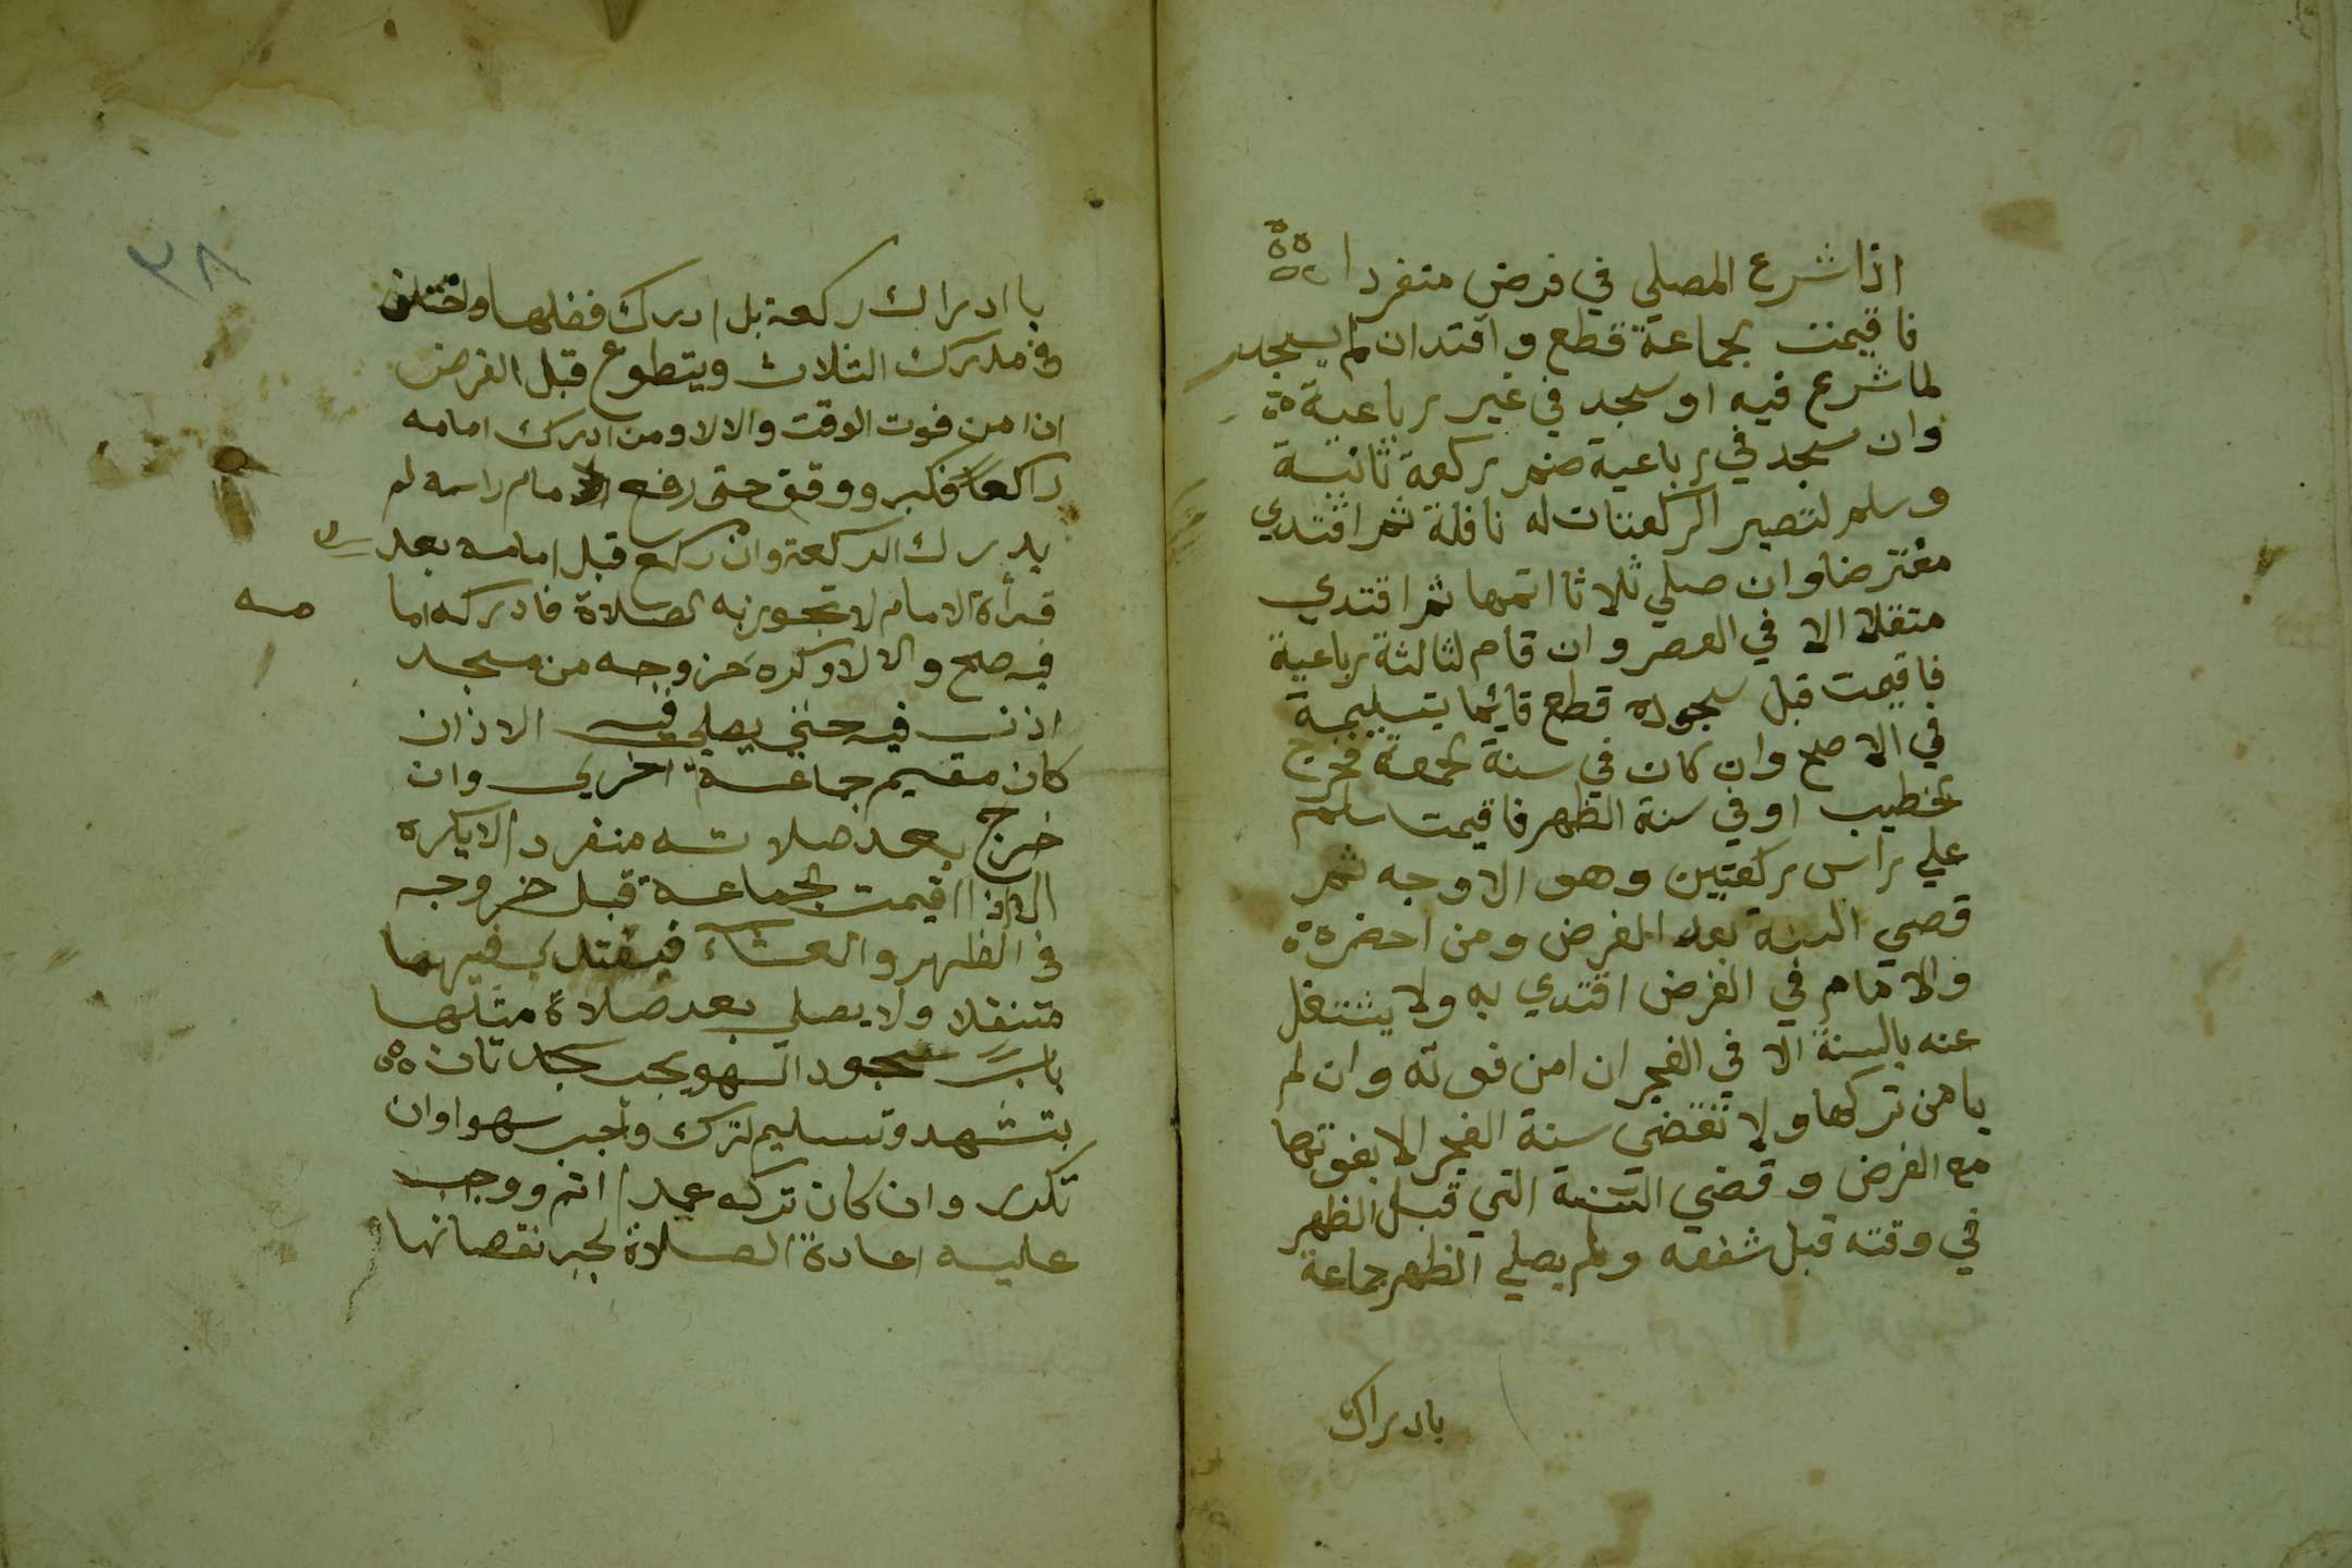 اذا شرع المصلي في فرض منفردا
فاقيمت الجماعة قطع واقتدا ان لم يسجد
لما شرع فيه او سجد في غير رباعية
وان سجد في رباعية ضم ركعة ثانية
وسلم لتصير الركعتان له نافلة ثم اقتدي
مفترضا وان صلي ثلاثا اتمها ثم اقتدي
متنفلا الا في العصر وان قام لثالثة رباعية
فاقيمت قبل سجوده قطع قائما بتسليمة
في الاصح وان كان في سنة الجمعة فخرج
الخطيب او في سنة الظهر فاقيمت سلم
علي راس ركعتين وهو الاوجه ثم
قضي السنة بعد الفرض ومن احضره
والامام في الفرض اقتدي به ولا يشتغل
عنه بالسنة الا في الفجر ان امن فوته وان لم
يامن تركها ولا تقضي سنة الفجر الا بفوتها
مع الفرض وقضي السنة التي قبل الظهر
في وقته قبل شفعه ولم يصلي الظهر جماعة
بادراك
٣٨
باادراك ركعة بل ادرك فضلها واختلف
في مدرك الثلاث ويتطوع قبل الفرض
ان امن فوت الوقت والا لا ومن ادرك امامه
راكعا فكبر ووقف حتى رفع الامام راسه لم
يدرك الركعة وان ركع قبل امامه بعد
قرأة الامام لا تجوز به الصلاة فادركه اما
مه
فيه صح والا لا وكره خروجه من مسجد
اذن فيه حتي يصلي فيه الا اذان
كان مقيم جماعة اخري وان
خرج بعد صلاته منفردا لا يكره
الا اذا اقيمت الجماعة قبل خروجه
في الظهر والعشاء فيقتدي فيهما
متنفلا ولا يصلي بعد صلاة مثلها
باب سجود السهو يجب سجدتان
بتشهد وتسليم لترك واجب سهوا وان
تكرر وان كان تركه عمدا اثم ووجب
عليه اعادة الصلاة لجبر نقصانها